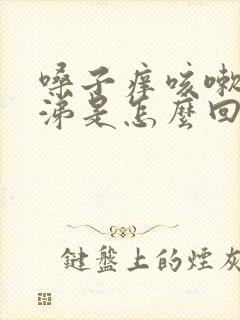 嗓子痒咳嗽
涕是怎麼回
鍵盤上的煙灰